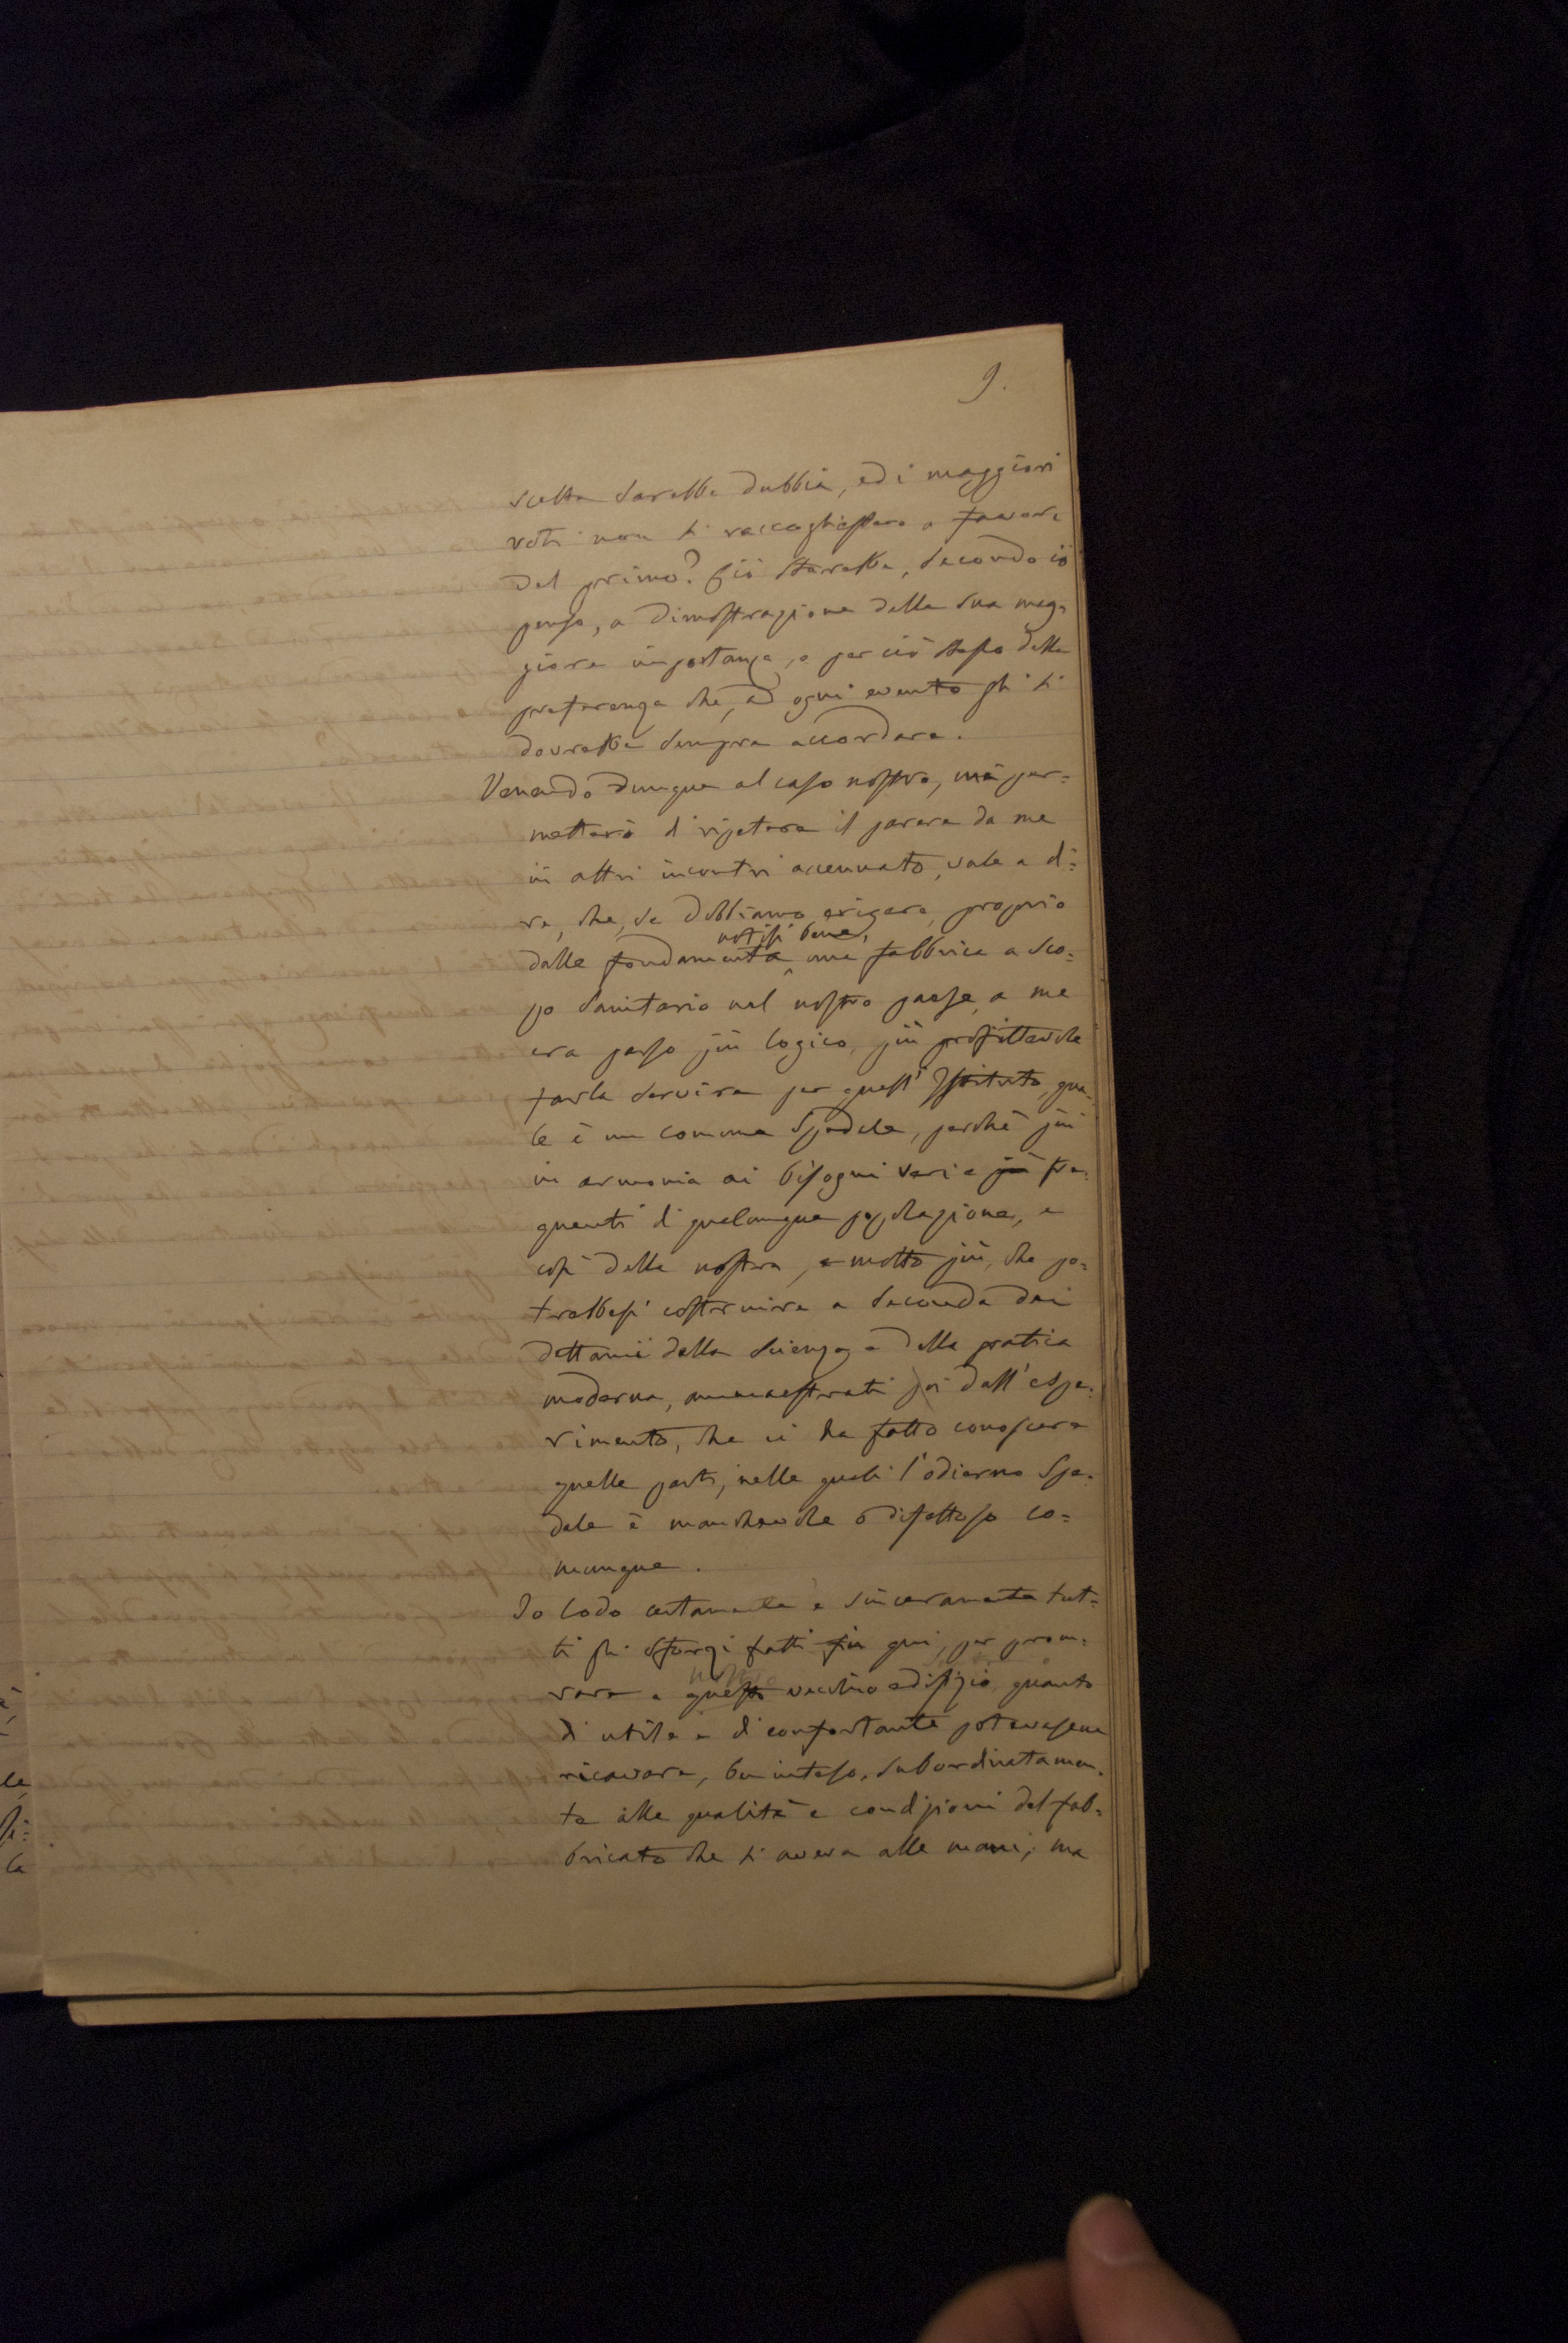 9.
scelta sarebbe dubbia, ed i maggiori
voti non si raccoglierebbero a favore
del primo? Ciò starebbe, secondo io
penso, a dimostrazione della sua mag=
giore importanza, e per ciò stesso della
preferenza che, ad ogni evento gli si
dovrebbe sempre accordare.
Venendo dunque al caso nostro, mi per=
metterò di ripetere il parere da me
in altri incontri accennato, vale a di=
re, che, se dobbiamo erigere, proprio
notisi bene,
dalle fondamenta una fabbrica a sco=
po sanitario nel nostro paese, a me
era parso più logico, più profittevole
farla servire per quest' Istituto, qua=
le è un comune Spedale, perchè più
in armonia ai bisogni veri e più fre=
quenti di qualunque popolazione, e
così della nostra, e molto più, che po=
trebbesi costruire a seconda dei
dettami della scienza e della pratica
moderna, ammaestrati poi dall'espe=
rimento, che ci ha fatto conoscere
quelle parti, nelle quali l'odierno Spe=
dale è manchevole o difettoso co=
munque.
Io lodo certamente e sinceramente tut=
ti gli sforzi fatti fin qui, per procu=
rare a questo vecchio edifizio quanto
di utile e di confortante potevasene
ricavare, ben inteso, subordinatamen=
te alle qualità e condizioni del fab=
bricato che si aveva alle mani; ma